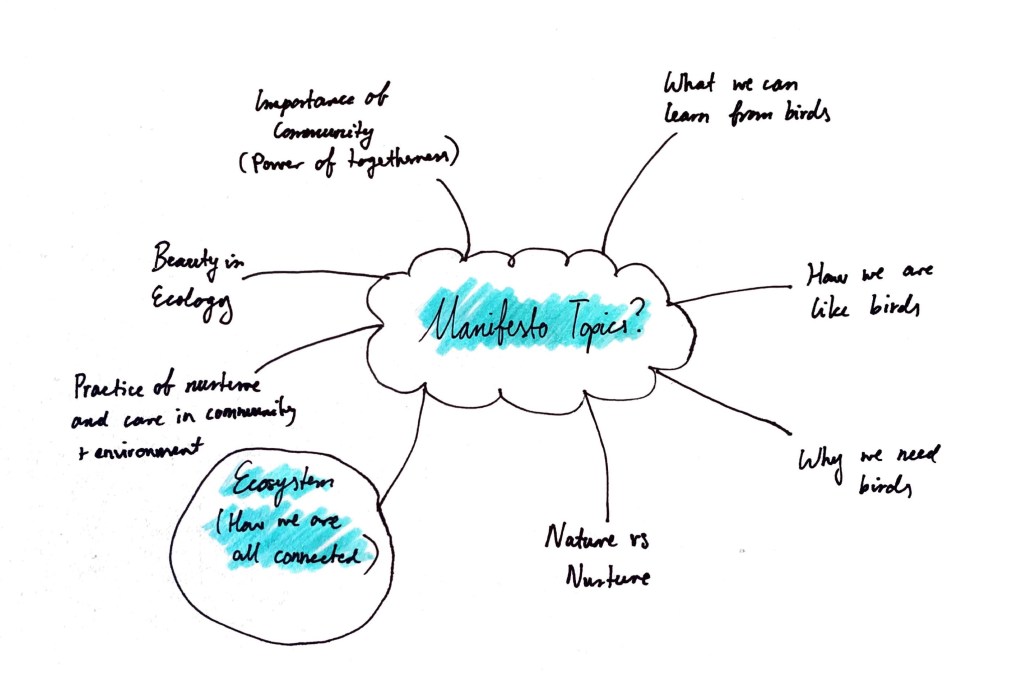 Importance of
Community
(Power of togetherness)
What we can
learn from birds
Beauty in
Ecology
How we are
like birds
Manifesto Topics?
Practice of nurture
and care in community
+ environment
Why we need
birds
Ecosystem
(How we are
all connected)
Nature vs
Nurture